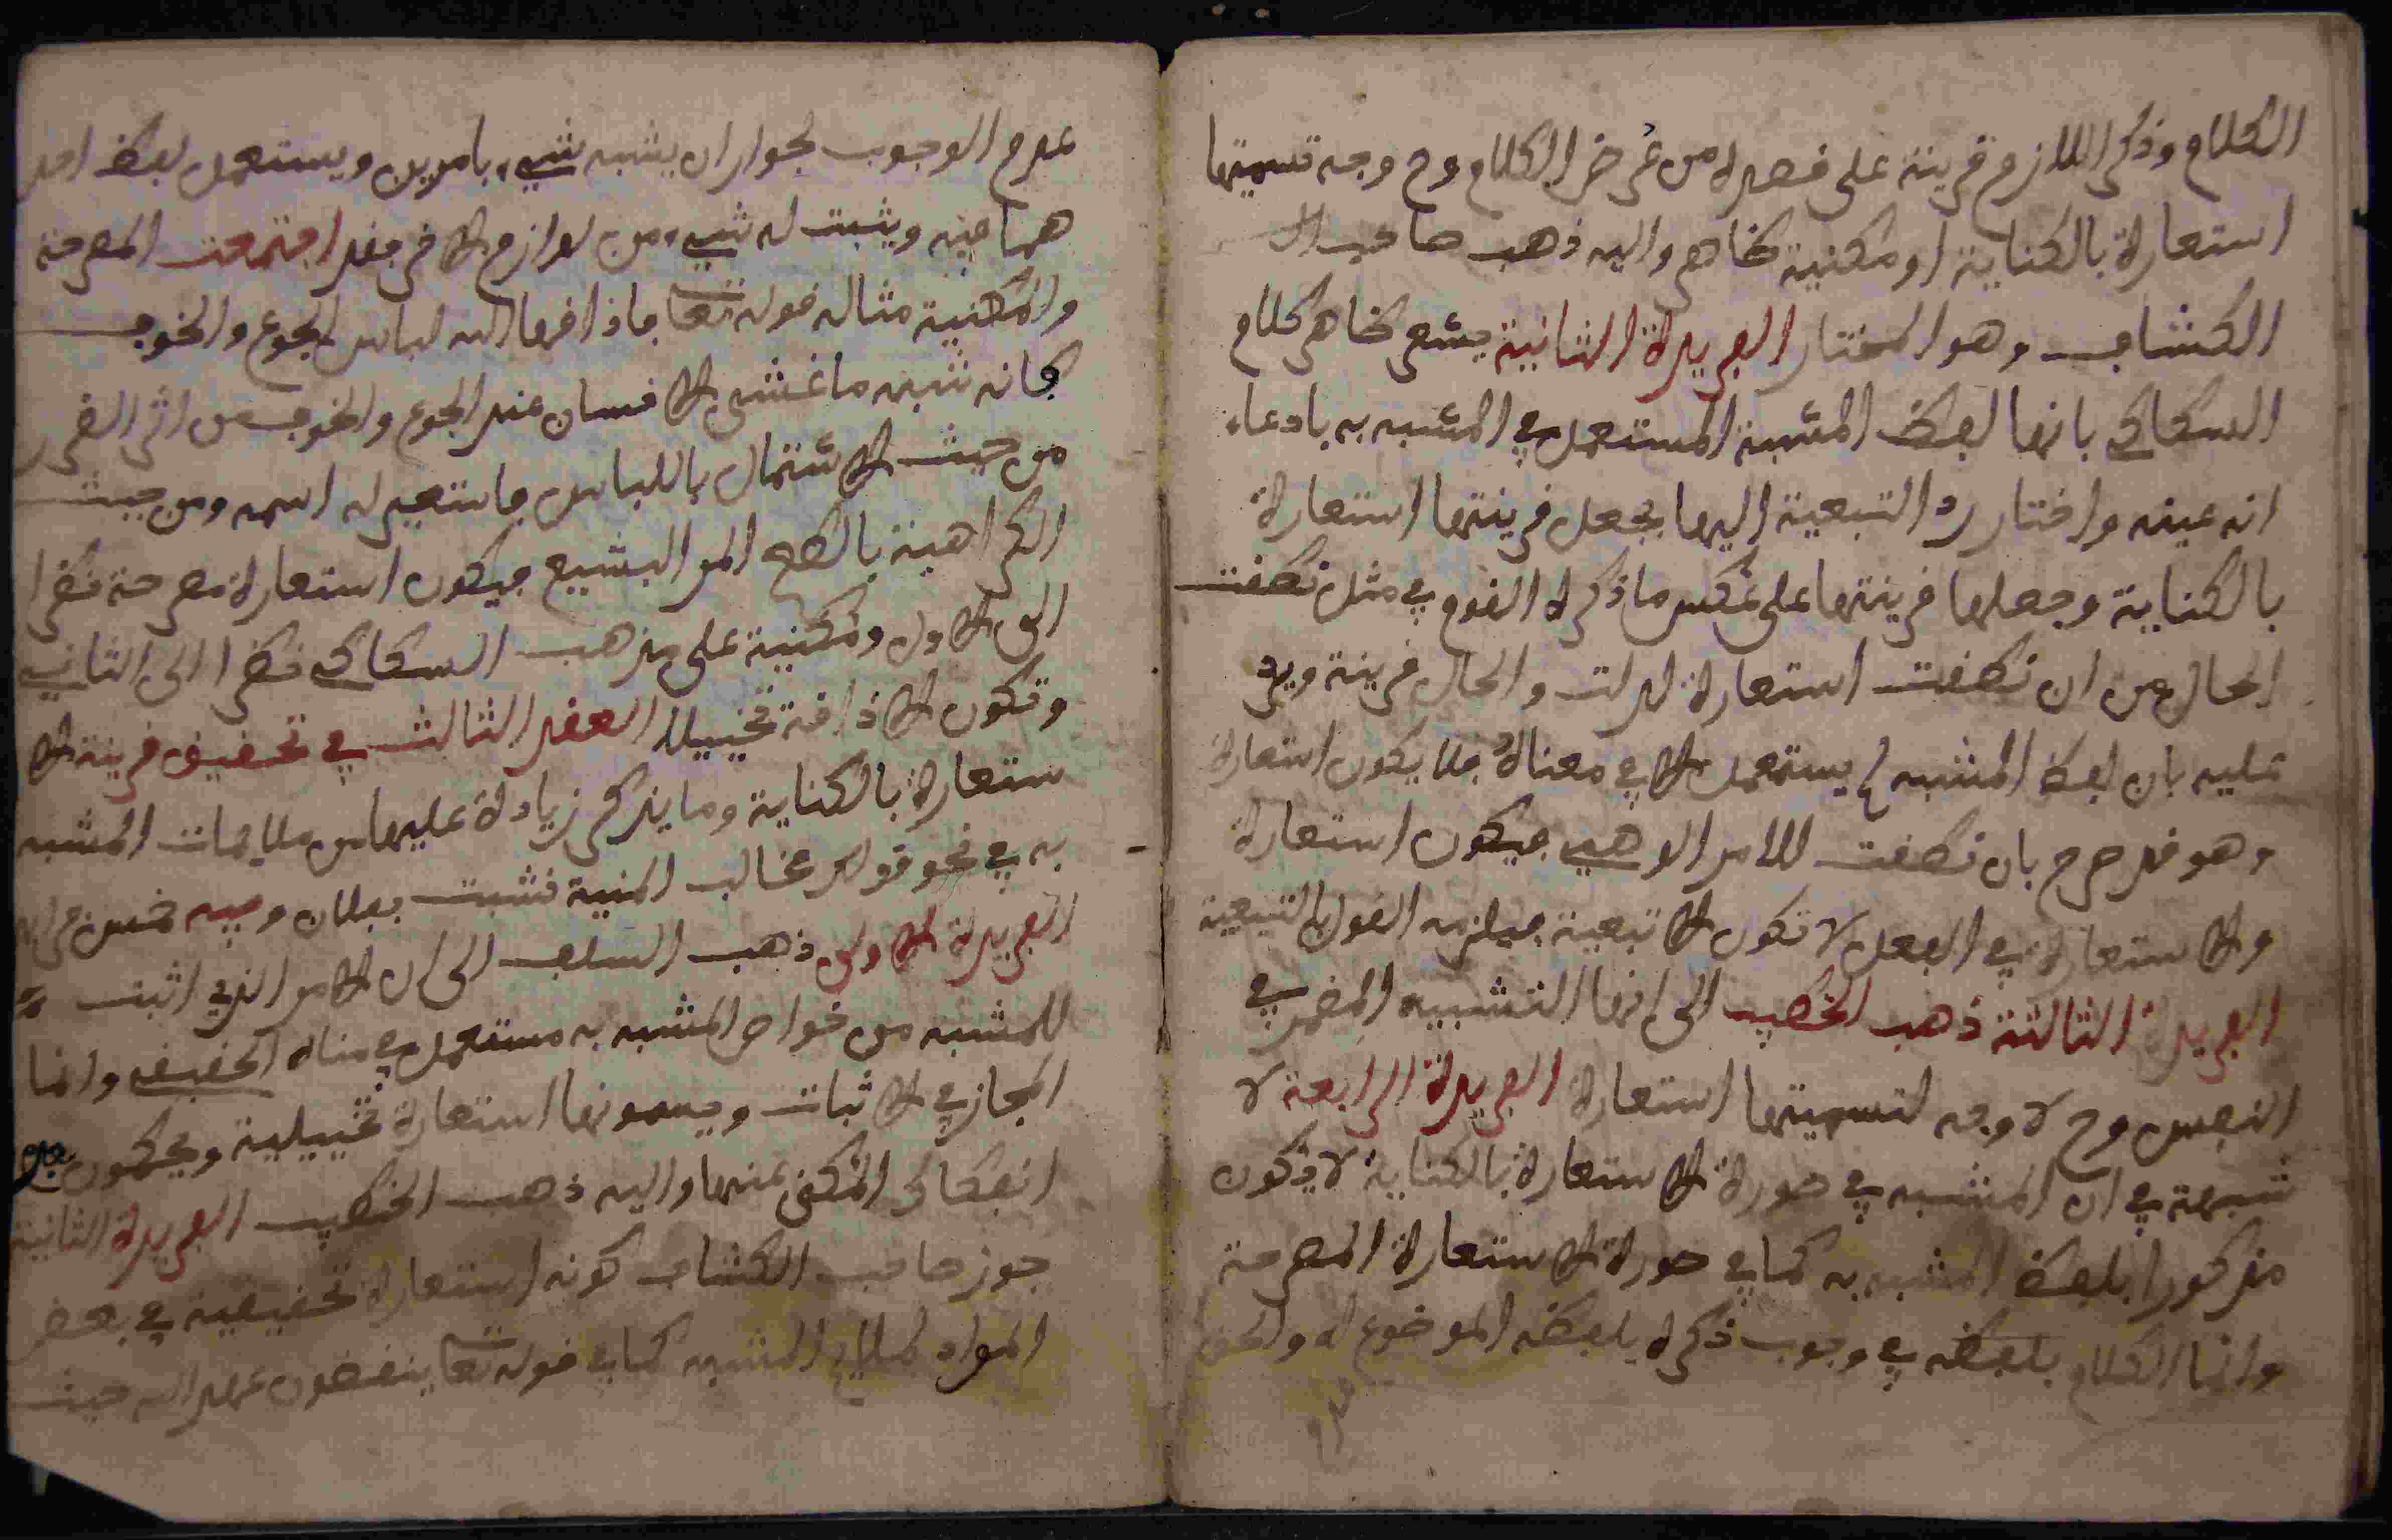 الكلام وذكر اللازم قرينة على قصده من عرض الكلام وح وجه تسميتها
استعارة بالكناية او مكنية ظاهر واليه ذهب صاحب
الكشاف وهو المختار الفريدة الثانية يشعر ظاهر كلام
السكاكي بانها لفظ المشبه المستعمل في المشبه به بادعاء
انه عينه واختار رد التبعية اليها بجعل قرينتها استعارة
بالكناية وجعلها قرينتها على عكس ما ذكره القوم في مثل نطقت
الحال من ان نطقت استعارة لدلت والحال قرينة ويرد
عليه بان لفظ المشبه لم يستعمل الا في معناه فلا يكون استعارة
وهو قد صرح بان نطقت للامر الوهمي فيكون استعارة
والاستعارة في الفعل لا تكون الا تبعية فيلزمه القول بالتبعية
الفريدة الثالثة ذهب الخطيب الى انها التشبيه المضمر في
النفس وح لا وجه لتسميتها استعارة الفريدة الرابعة لا
شبهة في ان المشبه في صورة الاستعارة بالكناية لا يكون
مذكورا بلفظ المشبه به كما في صورة الاستعارة المصرحة
وانما الكلام بلفظه في وجوب ذكره بلفظه الموضوع له والحق
عدم
عدم الوجوب لجواز ان يشبه شيء بامرين ويستعمل لفظ احد
هما فيه ويثبت له شيء من لوازم الاخر فقد اجتمعت المصرحة
والمكنية مثاله قوله تعا فاذاقها الله لباس الجوع والخوف
فانه شبه ما غشي الانسان عند الجوع والخوف من اثر الضرر
من حيث الاشتمال باللباس فاستعير له اسمه ومن حيث
الكراهية بالطعم المر البشيع فيكون استعارة مصرحة نظرا
الى الاول ومكنية على مذهب السكاكي نظرا الى الثاني
وتكون الاذاقة تخييلا العقد الثالث في تحقيق قرينة الا
ستعارة بالكناية وما يذكر زيادة عليها من ملايمات المشبه
به في نحو قولك مخالب المنية نشبت بفلان وفيه خمس فرائد
الفريدة الاولى ذهب السلف الى ان الامر الذي اثبت
للمشبه من خواص المشبه به مستعمل في معناه الحقيقي وانما
المجاز في الاثبات ويسمونها استعارة تخييلية ويحكمون بعدم
انفكاك المكنى عنها واليه ذهب الخطيب الفريدة الثانية
جوز صاحب الكشاف كونه استعارة تحقيقية في بعض
المواد لملايم المشبه كما في قوله تعا ينقضون عهد الله حيث